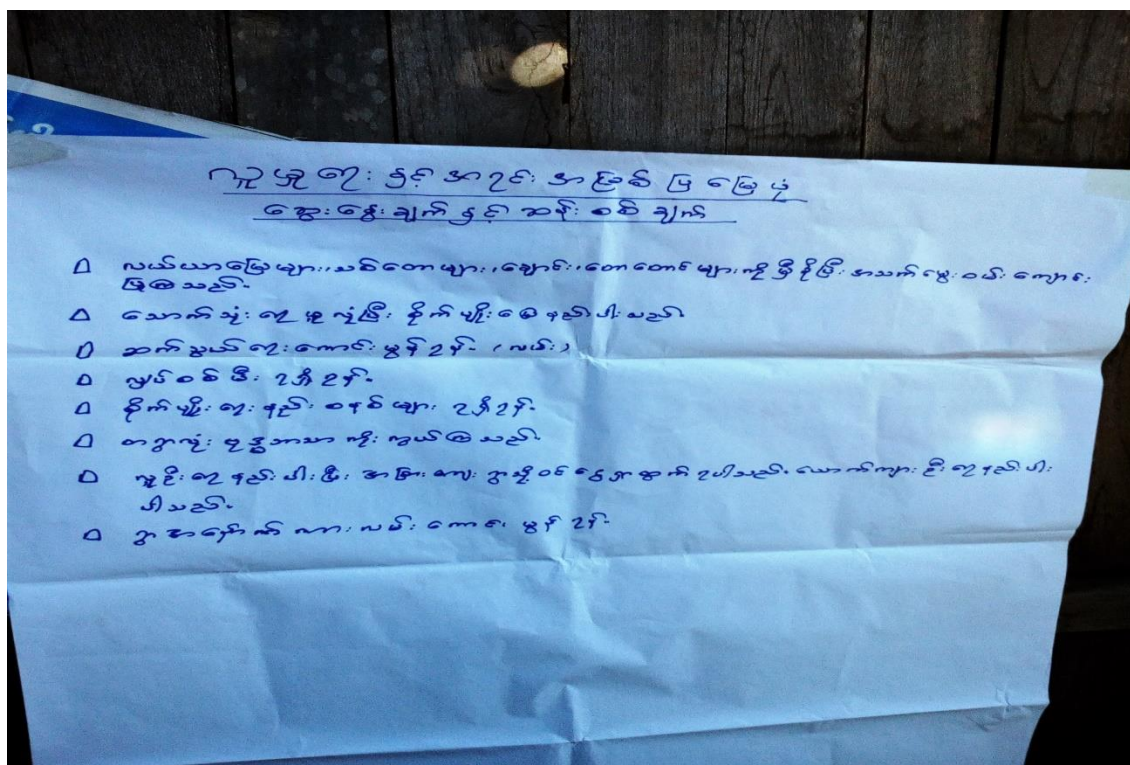 လူမှုရေး နှင့် အရင်း အမြစ် ပြ မြေပုံ
ဆွေးနွေး ချက် နှင့် ဆန်း စစ် ချက်
လယ်ယာမြေများ၊ သစ်တောများ၊ ချောင်း၊ တောတောင် များ ကို မှီခိုပြီး အသက်မွေး ဝမ်း ကျောင်း
ပြုကြသည်။
သောက်သုံး ရေ လုံပြီး စိုက်ပျိုး မြေ နည်းပါးသည်
ဆက်သွယ်ရေး ကောင်း မွန် ရန်။ (လမ်း)
လျှပ်စစ်မီး ရရှိရန်။
စိုက်ပျိုး ရေး နည်း စနစ်များ ရရှိရန်။
တရွာလုံး ဗုဒ္ဓဘာသာ ကိုးကွယ်ကြသည်။
လူဦးရေ နည်းပါးပြီး အခြား ကျေးရွာသို့ ဝင်ရွှေ့ ထွက် သည်။ ယောက်ကျား ဦးရေ နည်းပါး
ပါသည်။
ရွာ အနောက် လမ်း ကောင်း မွန် ရန်။